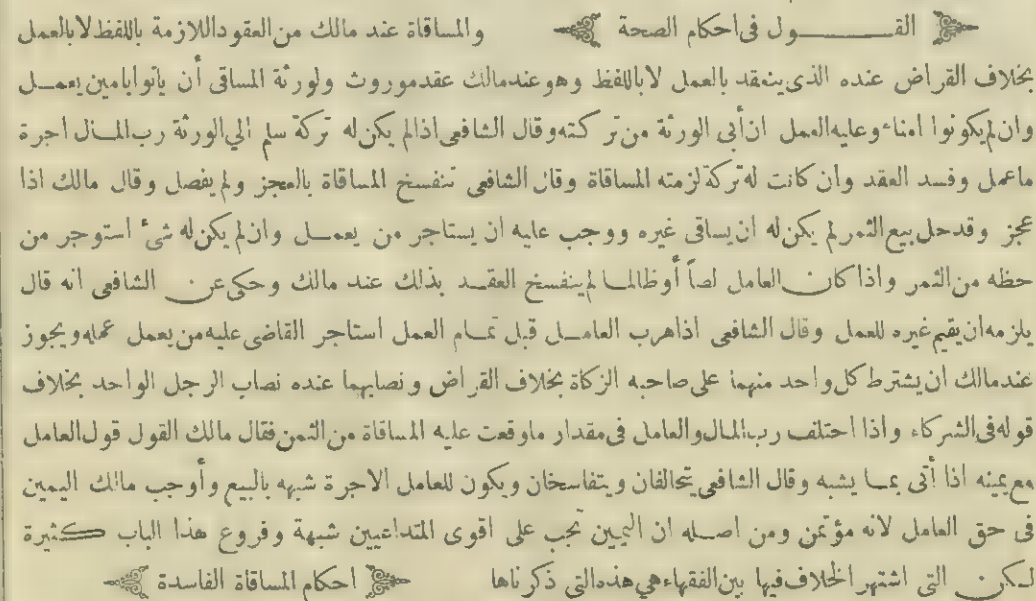 القـــــول فى احكام الصحة والمساقاة عند مالك من العقود اللازمة باللفظ لا بالعمل
بخلاف القراض عنده الذى ينعقد بالعمل لا باللفظ وهو عند مالك عقد موروث ولورثة المساقى أن ياتوا بامين يعمـــل
وان لم يكونوا امناء وعليه العمل ان أبى الورثة من تركته وقال الشافعى اذا لم يكن له تركة سلم الي الورثة رب المـــال اجرة
ماعمل وفسد العقد وان كانت له تركة لزمته المساقاة وقال الشافعى تنفسخ المساقاة بالعجز ولم يفصل وقال مالك اذا
عجز وقد حل بيع الثمر لم يكن له ان يساقى غيره ووجب عليه ان يستاجر من يعمـــل وان لم يكن له شئ استوجر من
حظه من الثمر واذا كان العامل لصاً أو ظالمـــا لم ينفسخ العقـــد بذلك عند مالك وحكى عن الشافعى انه قال
يلزمه ان يقيم غيره للعمل وقال الشافعى اذا هرب العامـــل قبل تمـــام العمل استاجر القاضى عليه من يعمل عمله ويجوز
عند مالك ان يشترط كل واحد منهما على صاحبه الزكاة بخلاف القراض ونصابهما عنده نصاب الرجل الواحد بخلاف
قوله فى الشركاء واذا اختلف رب المـــال والعامل فى مقدار ما وقعت عليه المساقاة من الثمن فقال مالك القول قول العامل
مع يمينه اذا أتى بمـــا يشبه وقال الشافعى يتحالفان ويتفاسخان ويكون للعامل الاجرة شبهه بالبيع وأوجب مالك اليمين
فى حق العامل لانه مؤتمن ومن اصـــله ان اليمين تجب على اقوى المتداعيين شبهة وفروع هذا الباب كـــثيرة
لـــكن التى اشتهر الخلاف فيها بين الفقهاء هى هذه التى ذكرناها احكام المساقاة الفاسدة